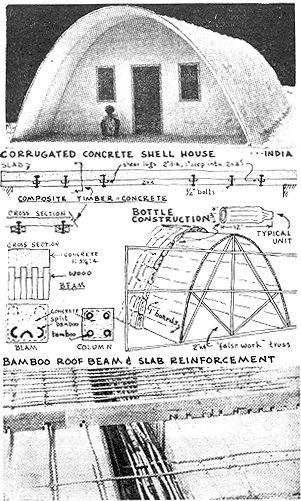 CORRUGATED CONCRETE SHELL HOUSE ---INDIA
SLAB
shear lugs 2"dia. 1" deep into 2x6's
2x6
½" bolts
COMPOSITE TIMBER-CONCRETE
CROSS SECTION
BOTTLE
CONSTRUCTION
12"
TYPICAL
UNIT
CROSS SECTION
CONCRETE
WOOD
BEAM
concrete
split
bamboo
bamboo
BEAM
COLUMN
1" boards
"false work" truss
BAMBOO ROOF BEAM & SLAB REINFORCEMENT